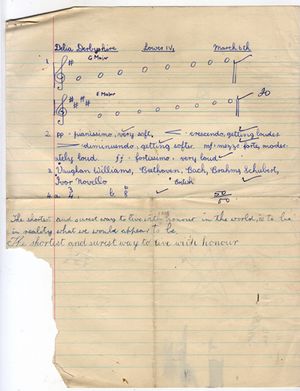 Delia Derbyshire Lower IV4 March 6th
1. G Major
E Major 20
2. pp - pianissimo, very soft, < crescendo, getting louder
> diminuendo, getting softer. mf - mezzo forte, moder-
ately loud. ff - fortissimo, very loud
3. Vaughan Williams, Beethoven, Bach, Brahms, Schubert,
Ivor Novello British
4. a b 50/50
The shortest and surest way to live with honour in the world, is to be
in reality what we would appear to be.
The shortest and surest way to live with honour